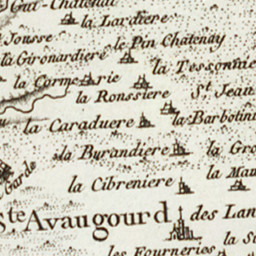 Gui-Chatenai
la Lardiere
Jousse
le Pin Chatenay
la Gironardiere
la Tessonnie
la Cormerie
la Ronssiere
St. Jean
la Caraduere
la Barbotini
la Burandiere
la Gro
Garde
la Cibreniere
la Mau
Ste Avaugourd
des Lan
les Fourneries
la S